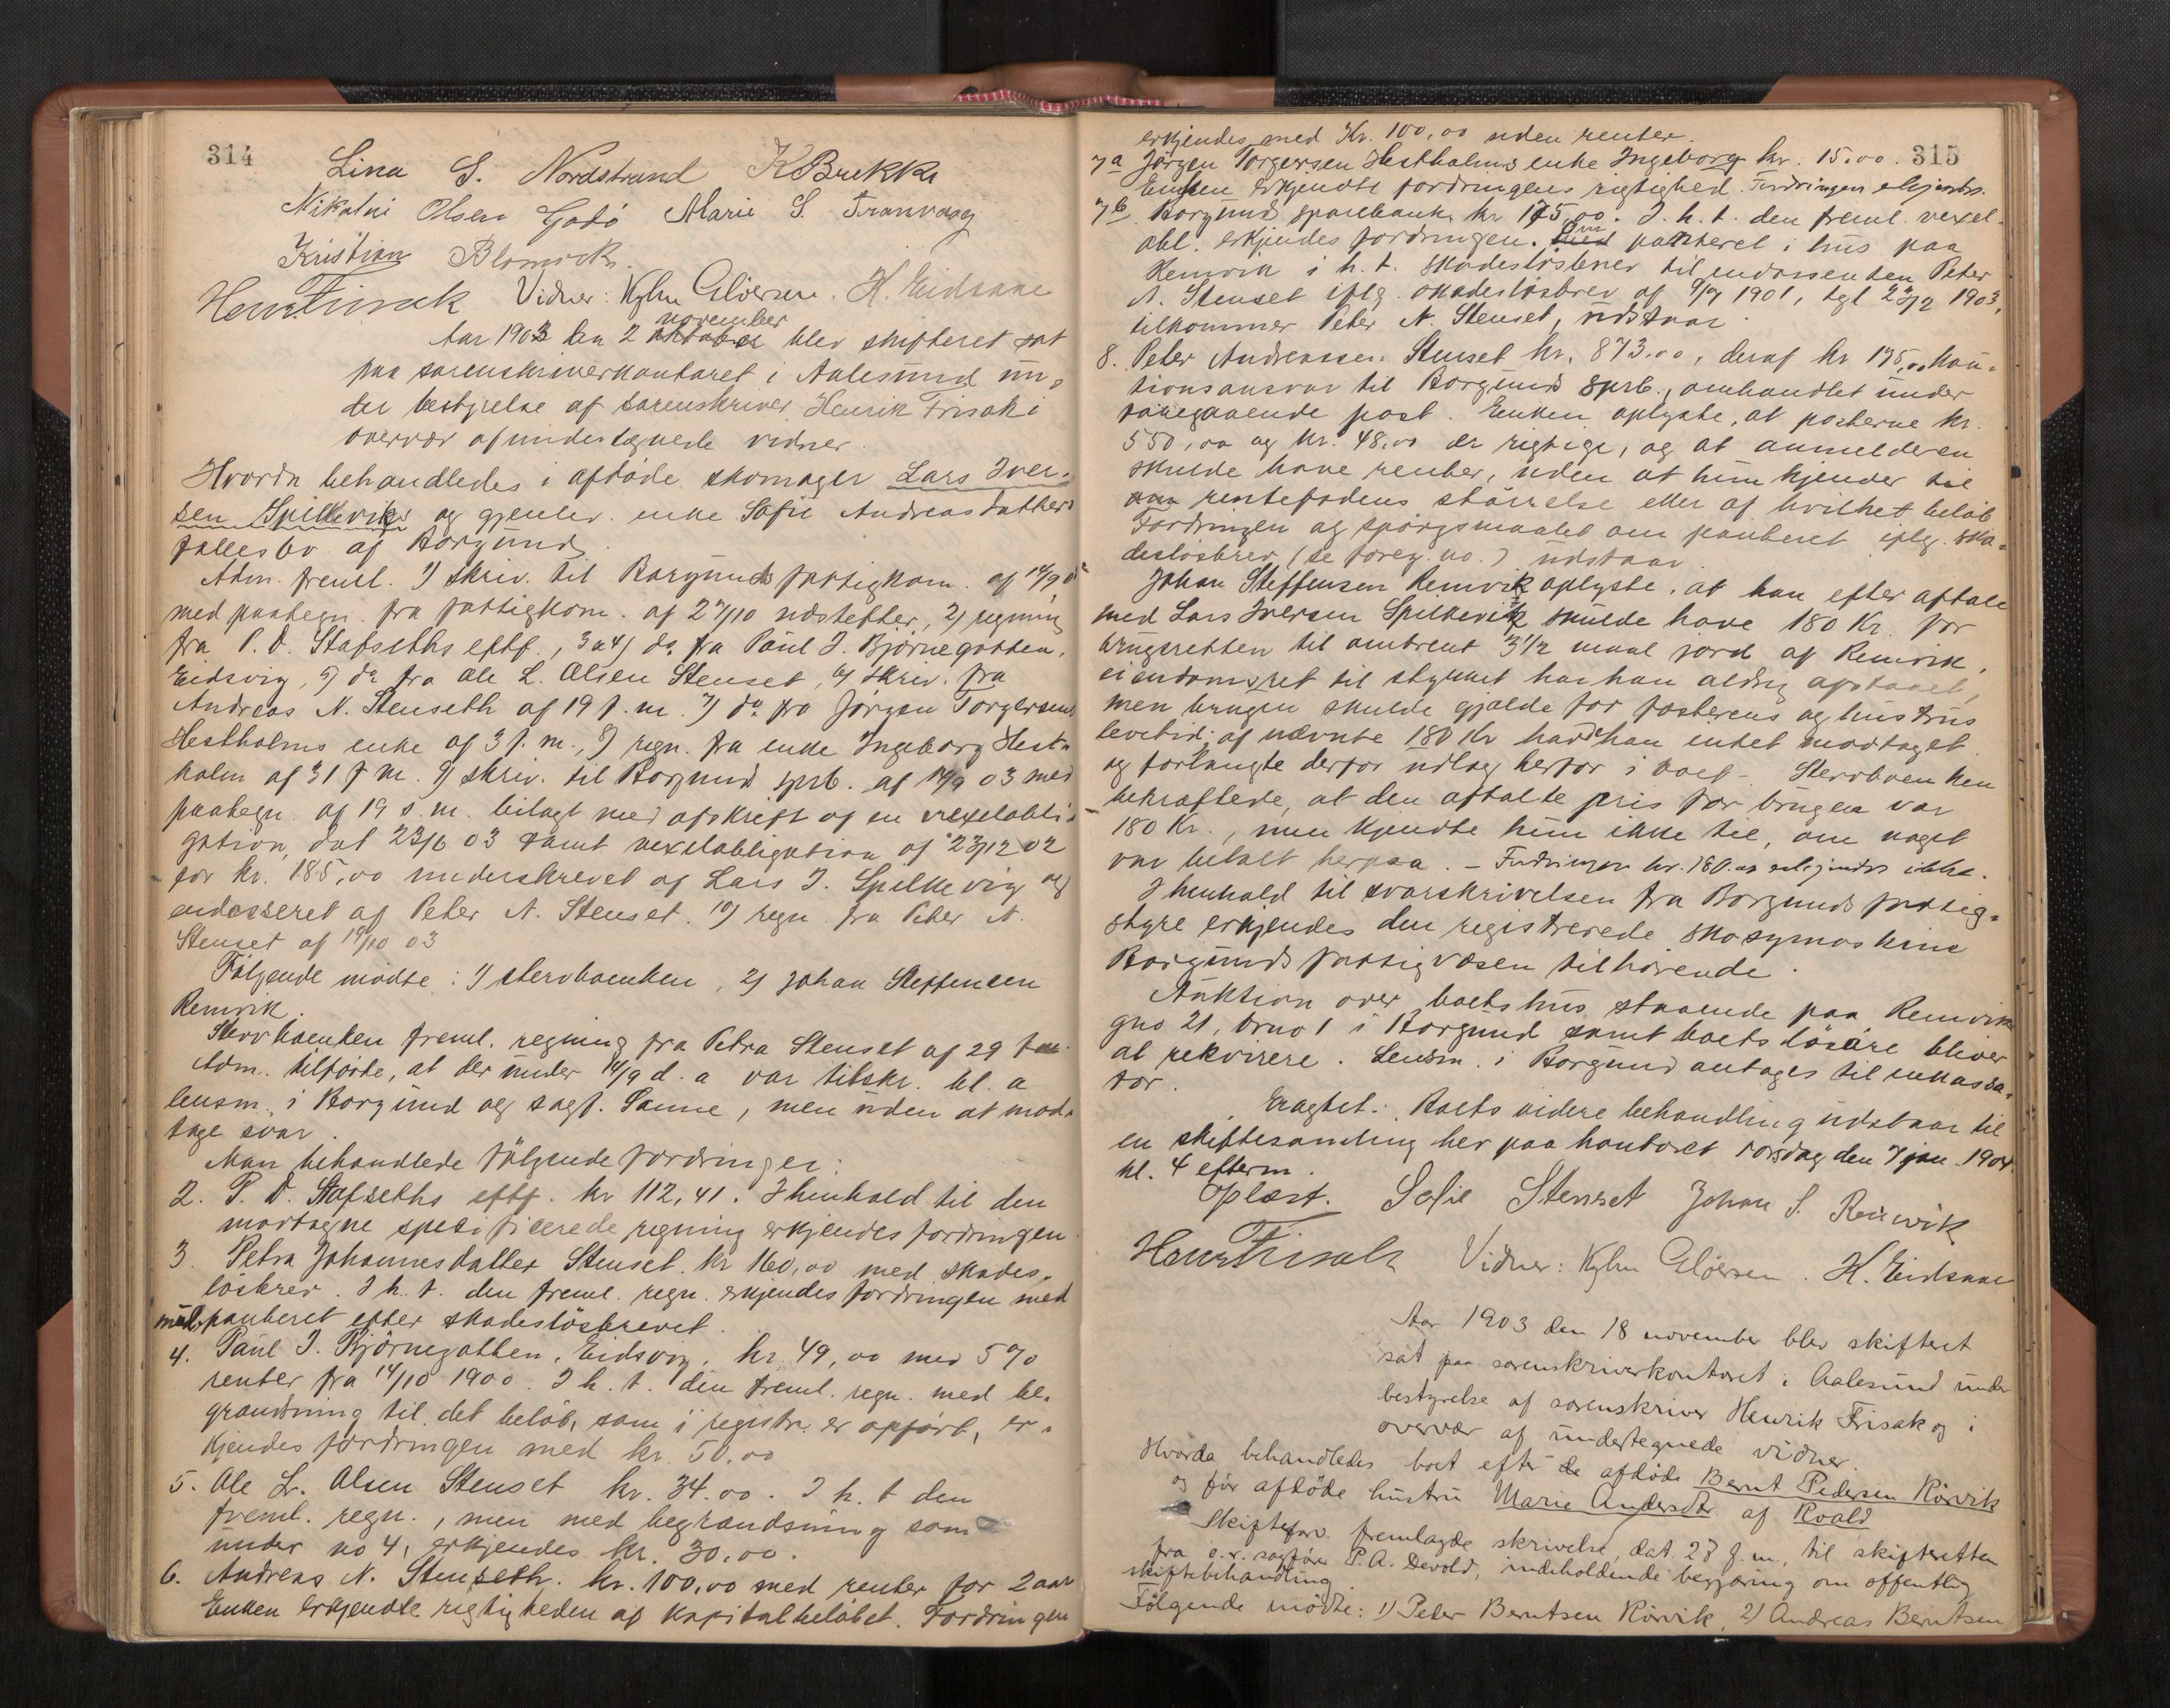 314
Lina S. Nordstrand K Brekke
Nikolai Olsen Godö Marie S. Tranvaag
Kristian Blomvik.
Henr Frisak Vidner: Kylm Gloersen. H. Eidsaae
november
Aar 1903 den 2 oktober blev skifteret sat
paa sorenskriverkontoret i Aalesund un-
der bestyrelse af sorenskriver Henrik Frisak i
overvær af undertegnede vidner
Hvorda behandledes i afdöde skomager Lars Iver-
sen Spilkeviks og gjenlev. enke Sofie Andreasdatters
fællesbo af Borgund
Adm. freml. 1) skriv. til Borgunds fattigkom. af 14/9 d.
med paategn. fra fattigkom. af 27/10 næstefter, 2) regning
fra P. D. Stafseths eftf., 3 & 4) do. fra Paul J. Björnegotten,
Eidsvig, 5) do fra Ole L. Olsen Stenset, 6) skriv. fra
Andreas N. Stenseth af 19 f. m. 7) do fra Jörgen Torgersens
Hestholms enke af 3 f. m., 8) regn. fra enke Ingeborg Hest-
holm af 31 f m. 9) skriv. til Borgund sprb. af 14/9 03 med
paategn. af 19 s. m. bilagt med afskrift af en vexelobli-
gation, dat 23/6 03 samt vexelobligation af 23/12 02
for kr. 185,00 underskrevet af Lars I. Spilkevig og
endosseret af Peter N. Stenset. 10) regn. fra Peter N.
Stenset af 19/10 03
Fölgende mödte: 1) stervboenken, 2) Johan Steffensen
Remvik.
Stervboenken freml. regning fra Petra Stenset af 29 f m.
Adm. tilförte, at der under 14/9 d. a var tilskr. bl. a
lensm. i Borgund og sagf. Sanne, men uden at mod-
tage svar.
Man behandlede fölgende fordringer:
2. P. D. Stafseths eftf. kr 112,41. I henhold til den
modtagne spesificerede regning erkjendes fordringen
3. Petra Johannesdatter Stenset. kr 160,00 med skades-
lösbrev. I h. t. den freml. regn. erkjendes fordringen med
med panteret efter skadeslösbrevet.
4. Paul J. Björnegotten, Eidsvig, kr. 49,00 med 5 %
renter fra 14/10 1900. I h. t. den freml. regn. med be-
grændsning til det belöb, som i registr. er opfört, er-
kjendes fordringen med kr. 50,00
5. Ole L. Olsen Stenset kr. 34.00. I h. t den
freml. regn., men med begrændsning som
under no 4, erkjendes kr. 30,00.
6. Andreas N. Stenseth. kr. 100,00 med renter for 2 aar
Enken erkjendte rigtigheden af kapitalbelöbet. Fordringen
315
erkjendes med Kr. 100,00 uden renter.
7a Jörgen Torgersen Hestholms enke Ingeborg kr. 15.00.
Enken erkjendte fordringens rigtighed. Fordringen erkjendes.
7b. Borgund sparebank kr 175,00. I h. t. den freml. vexel-
obl. erkjendes fordringen. Om panteret i hus paa
Remvik i h. t. skadeslösbrev til endossenten Peter
N. Stenset iflg. skadeslösbrev af 9/7 1901, tgl 23/2 1903,
tilkommer Peter N. Stenset, udstaar.
8. Peter Andreassen Stenset kr. 873.00, deraf kr 175,00 kau-
tionsansvar til Borgund sprb., omhandlet under
foregaaende post. Enken oplyste, at posterne kr.
550,00 og kr. 48.00 er rigtige, og at anmelderen
skulde have renter, uden at hun kjender til
rentefodens störrelse eller af hvilket belöb
Fordringen og spörgsmaalet om panteret iflg. ska-
deslösbrev (se foreg. no.) udstaar.
Johan Steffensen Remvik oplyste, at han efter aftale
med Lars Iversen Spilkevik skulde have 180 Kr. for
brugsretten til omtrent 3 1/2 maal jord af Remvik,
eiendomsret til stykket har han aldrig afstaaet,
men brugen skulde gjælde for fæsterens og hustrus
levetid; af nævnte 180 Kr havde han intet modtaget
og forlangte derfor udlæg herfor i boet. – Stervboenken
bekræftede, at den aftalte pris for brugen var
180 Kr., men kjendte hun ikke til, om noget
var betalt herpaa. – Fordringen kr. 180.00 erkjendes ikke.
I henhold til svarskrivelsen fra Borgunds fattig-
styre erkjendes den registrerede skosymaskine
Borgunds fattigvæsen tilhörende.
Auktion over boets hus staaende paa Remvik
gno 21, bruno 1 i Borgund samt boets lösöre bliver
at rekvirere. Lensm. i Borgund antages til inkassa-
tor.
Eragtet: Boets videre behandling udstaar til
en skiftesamling her paa kontoret torsdag den 7 jan. 1904
kl. 4 efterm.
Oplæst. Sofie Stenset Johan S. Remvik
Henr Frisak Vidner: Kylm Gloersen. H. Eidsaae
Aar 1903 den 18 november blev skifteret
sat paa sorenskriverkontoret i Aalesund under
bestyrelse af sorenskriver Henrik Frisak og i
overvær af undertegnede vidner.
Hvorda behandledes boet efter de afdöde Bernt Pedersen Rörvik
og för afdöde hustru Marie Andersdtr af Roald
Skifteforv. fremlagde skrivelse, dat. 28 f. m., til skifteretten
fra o.r. sagförer P. A. Devold, indeholdende begjæring om offentlig
skiftebehandling
Fölgende mödte: 1) Peder Berntsen Rörvik, 2) Andreas Berntsen